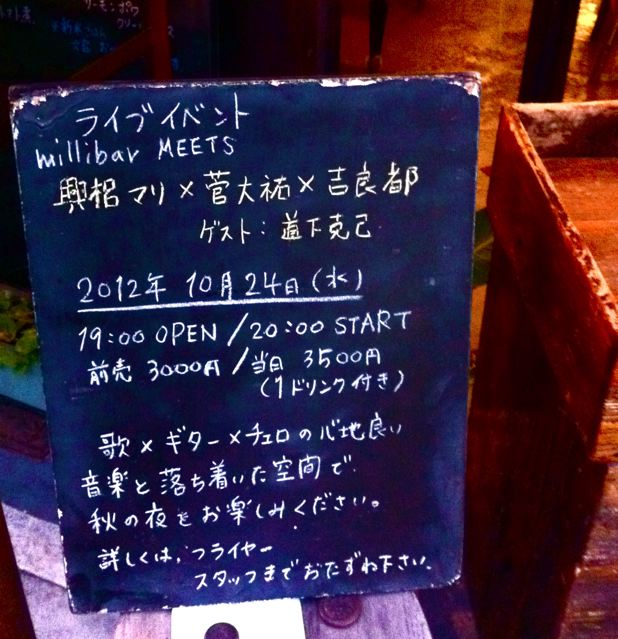 ライブイベント
millibar MEETS
興梠マリ×菅大祐×吉良都
ゲスト：道下克己
2012年 10月24日(水)
19:00 OPEN/20:00 START
前売 3000円/当日 3500円
(1ドリンク付き)
歌×ギター×チェロの心地良い
音楽と落ち着いた空間で
秋の夜をお楽しみください。
詳しくは、フライヤー
スタッフまでおたずね下さい。